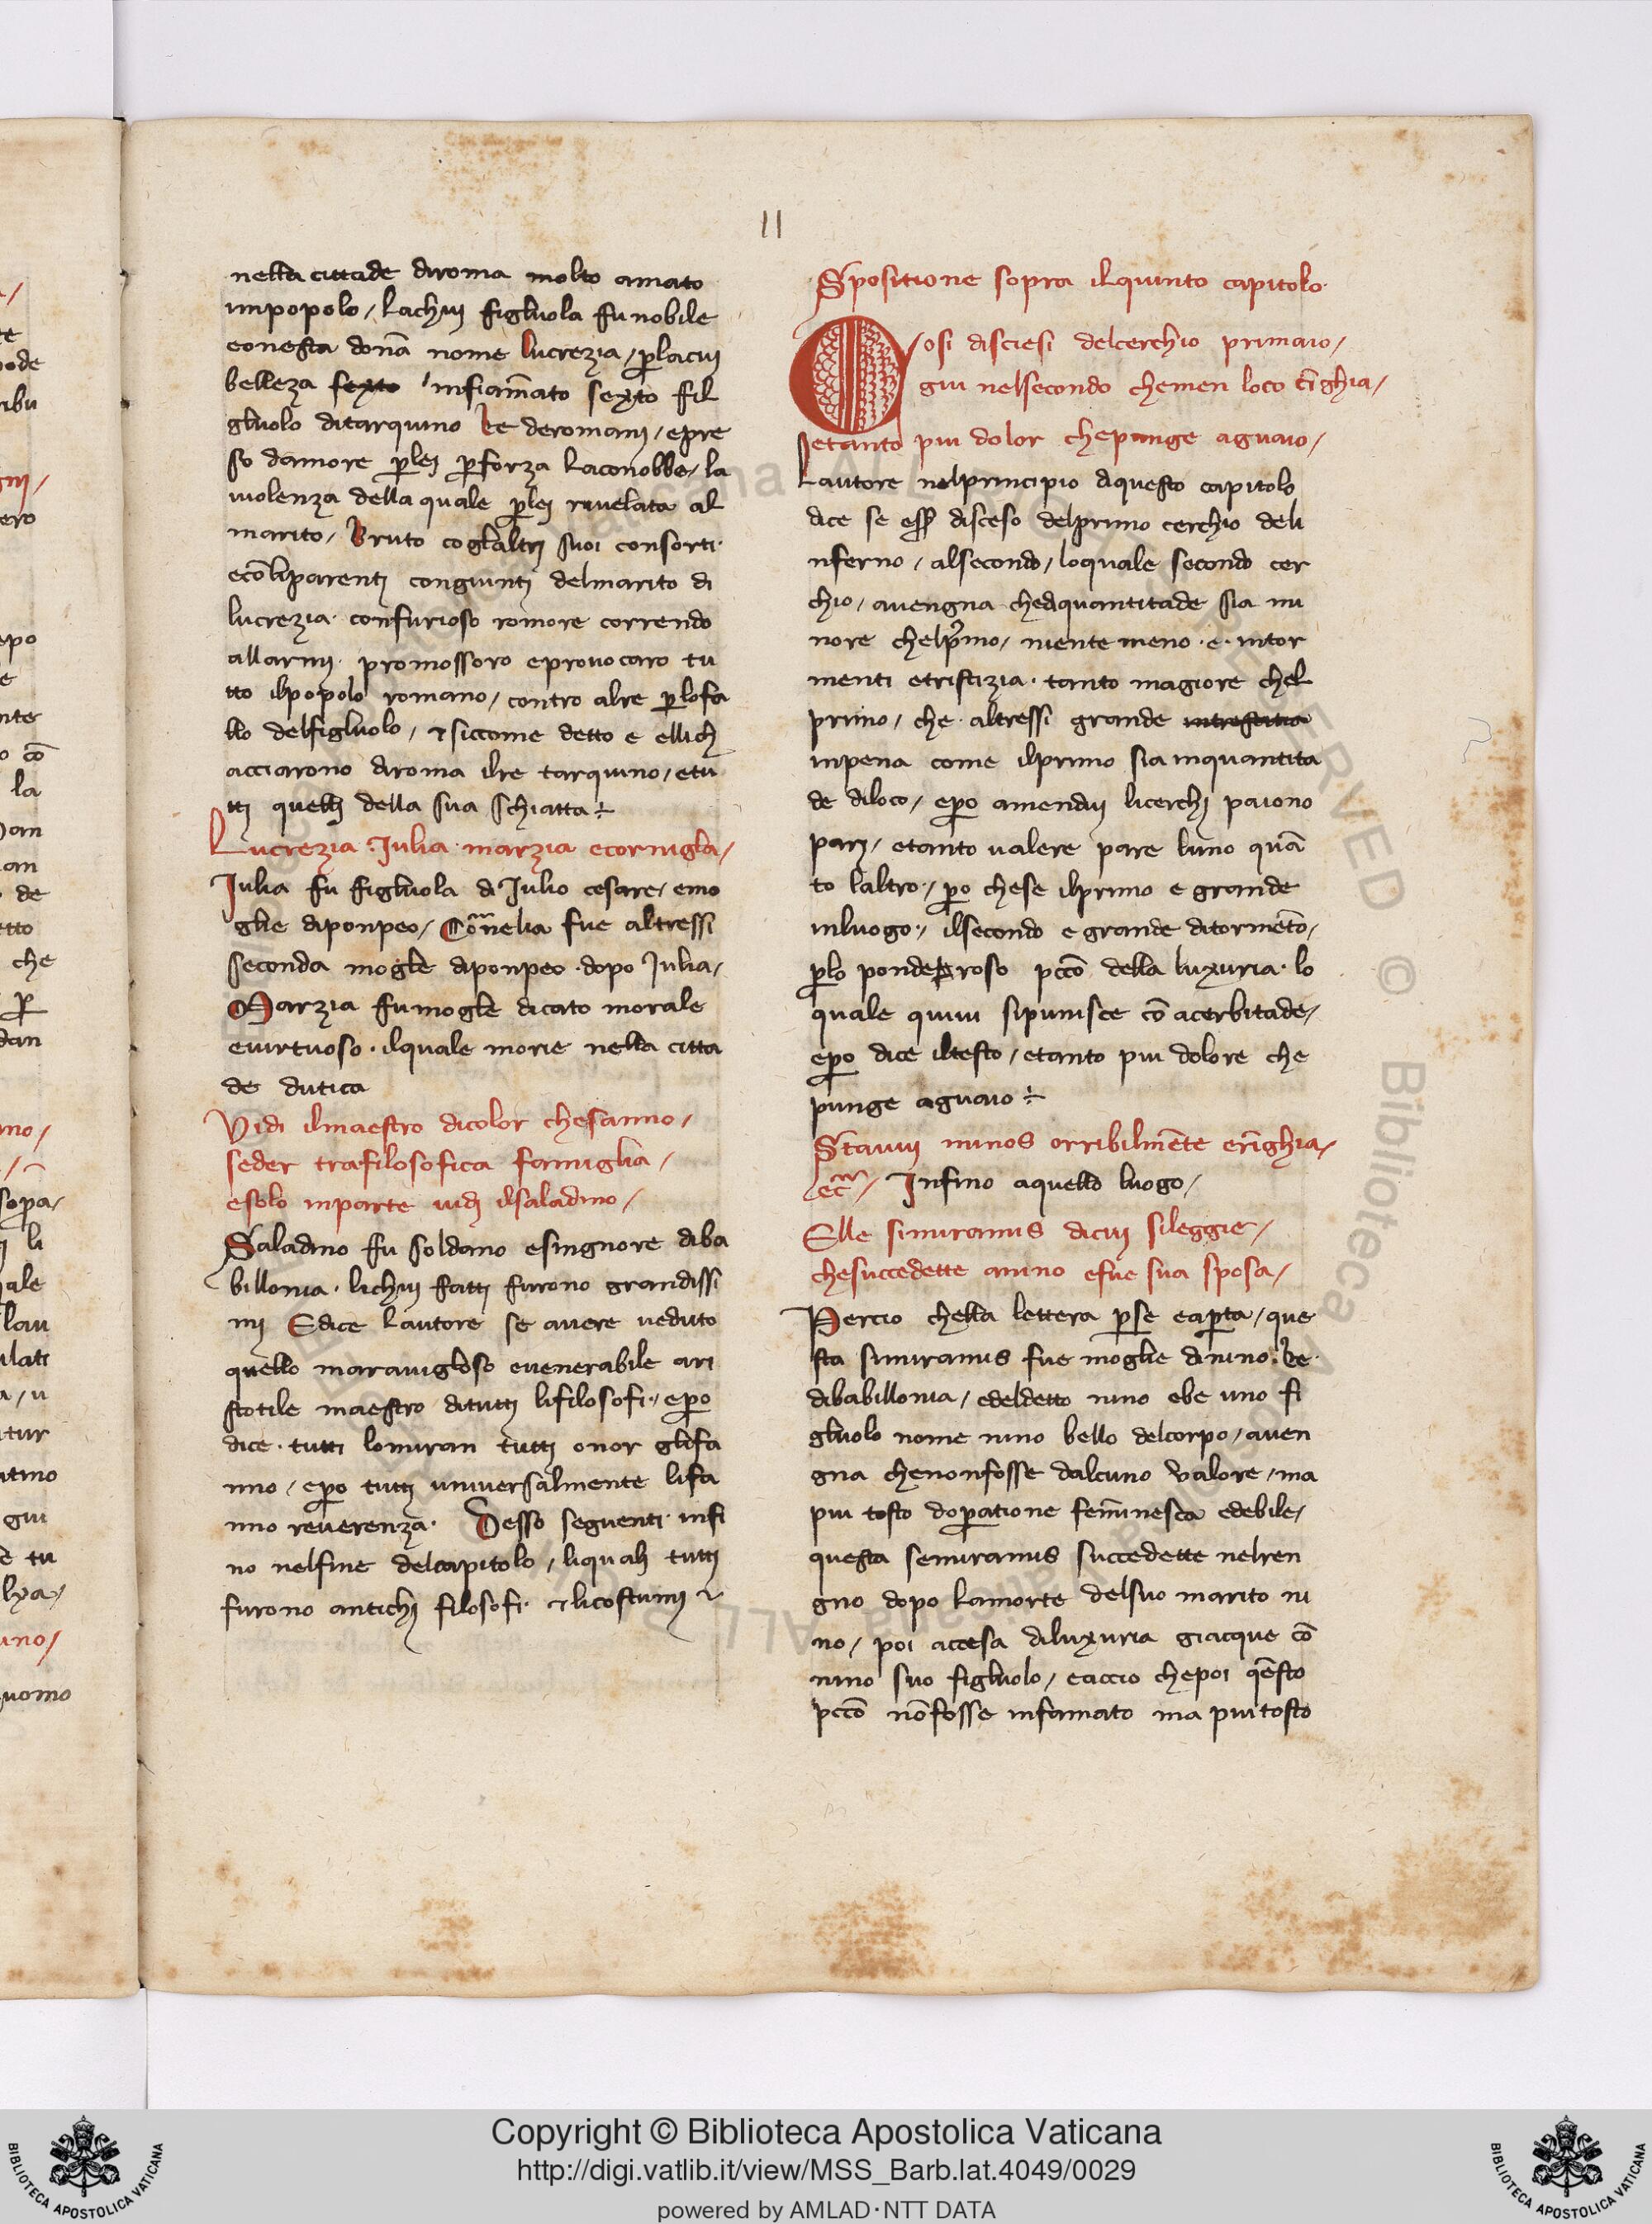 11
nella cittade diroma molto amato
impopolo / lachui figliuola fu nobile
eonesta don̄a nome lucrezia / p̲lacui
belleza sexto infiam̄ato sexto fil
gliuolo ditarquino Re deromani / epre
so damore p̲lei p̲forza laconobbe / la
uiolenza della quale p̲lei riuelata al
marito / Bruto coglialtri suoi consorti ·
ecōliparenti congiunti delmarito di
lucrezia · confurioso romore correndo
allarmi · promossoro eprouocaro tu
tto ilpopolo romano / contro alre p̲lofa
llo delfigliuolo / ⁊ siccome detto e ellich
acciarono diroma ilre tarquino / etu
tti quelli della sua schiatta ÷
Lucrezia · Iulia · marzia ecorniglia /
Iulia fu figliuola di Iulio cesare / emo
glie diponpeo / Cornelia fue altressi
seconda moglie diponpeo · dopo Iulia /
Marzia fumoglie dicato morale
euirtuoso · ilquale morie nella citta
de dutica
Vidi ilmaestro dicolor chesanno /
seder trafilosofica famiglia /
esolo inparte uidi ilsaladino /
Saladino fu soldano esingnore diba
billonia · lichui fatti furono grandissi
mi Edice lautore se auere ueduto
quello marauiglioso euenerabile ari
stotile maestro ditutti lifilosofi · / ep̲o
dice · tutti lomiran tutti onor glifa
nno / ep̲o tutti uniuersalmente lifa
nno reuerenza · Desso seguenti · infi
no nelfine delcapitolo / liquali tutti
furono antichi filosofi · ⁊ licostumi ⁊
Spositione sopra ilquinto capitolo ·
Cosi disciesi delcerchio primaio /
giu nelsecondo chemen loco cīghia /
etanto piu dolor chepunge aguaio /
Lautore nelprincipio diquesto capitolo
dice se ess̲ disceso delprimo cerchio deli
nferno / alsecondo / loquale secondo cer
chio / auengna chediquantitade sia mi
nore chelp̄mo / niente meno · e · intor
menti etristizia · tanto magiore chel
primo / che · altressi grande
inpena come ilprimo sia inquantita
de diloco / ep̲o amendui licerchi paiono
pari / etanto ualere pare luno quā
to laltro · / p̲o chese ilprimo e grande
inluogo · / ilsecondo e grande ditormēto /
p̲lo ponderoso pccō della luxuria · lo
quale quiui sipunisce cō acerbitade /
ep̲o dice iltesto / etanto piu dolore che
punge aguaio ÷
Stauui minos orribilmēte erīghia /
ec̄ / Infino aquello luogo /
Elle simiramis dicui sileggie /
chesuccedette anino efue sua sposa /
Percio chella lettera p̲se eap̲ta / que
sta simiramis fue moglie dinino Re ·
dibabillonia / edeldetto nino ebe uno fi
gliuolo nome nino bello delcorpo / auen
gna chenonfosse dalcuno valore / ma
piu tosto dop̲atione fem̄inesca edebile /
questa semiramis succedette nelren
gno dopo lamorte delsuo marito ni
no / poi accesa diluxuria giacque cō
nino suo figliuolo / eaccio chepoi q̄sto
pccō nōfosse infamato ma piutosto
Copyright © Biblioteca Apostolica Vaticana
http://digi.vatlib.it/view/MSS_Barb.lat.4049/0029
powered by AMLAD·NTT DATA